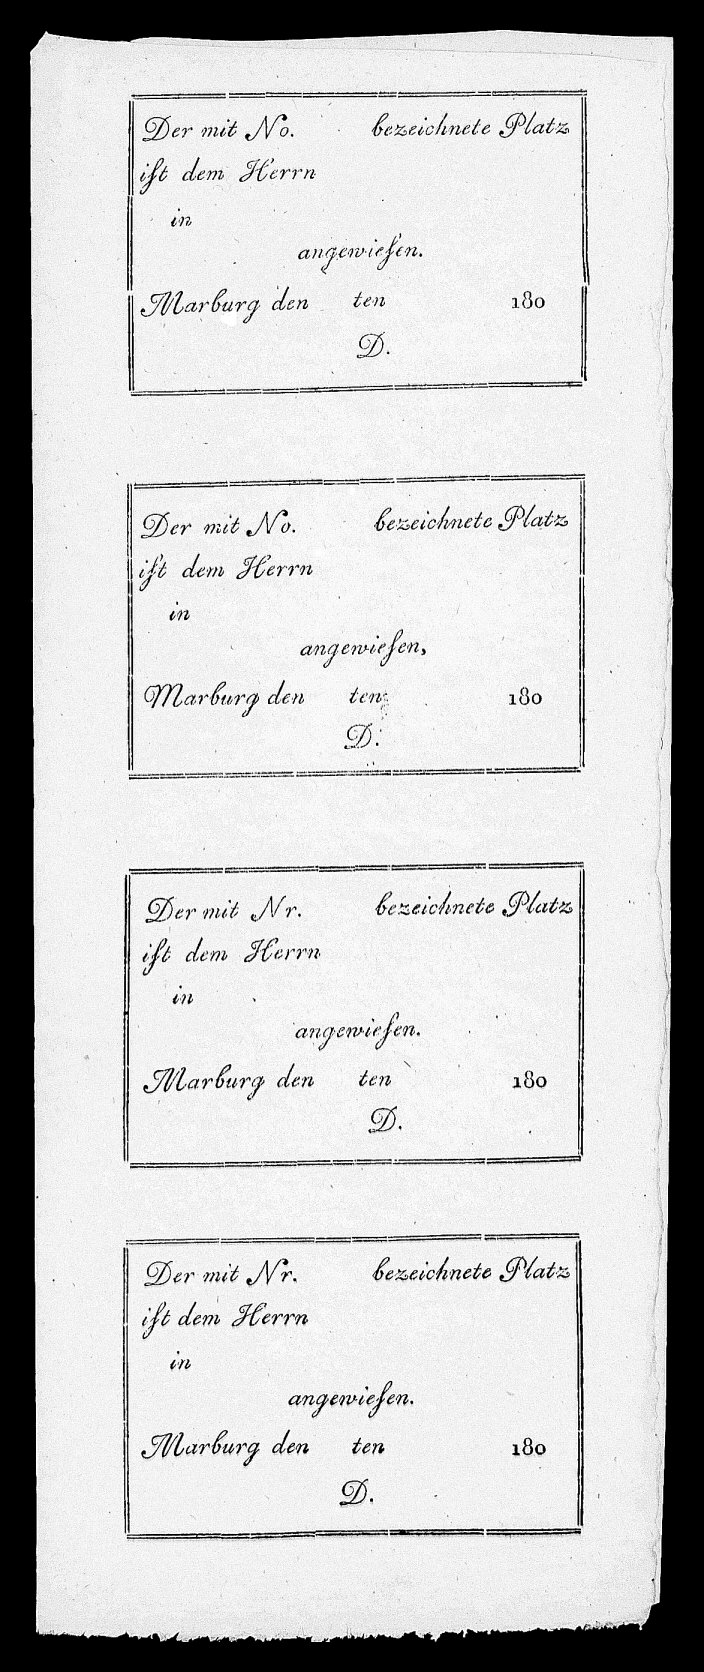 Der mit No. bezeichnete Platz
iſt dem Herrn
in
angewieſen.
Marburg den ten 180
D.
Der mit No. bezeichnete Platz
iſt dem Herrn
in
angewieſen,
Marburg den ten 180
D.
Der mit Nr. bezeichnete Platz
iſt dem Herrn
in
angewieſen.
Marburg den ten 180
D.
Der mit Nr. bezeichnete Platz
iſt dem Herrn
in
angewieſen.
Marburg den ten 180
D.